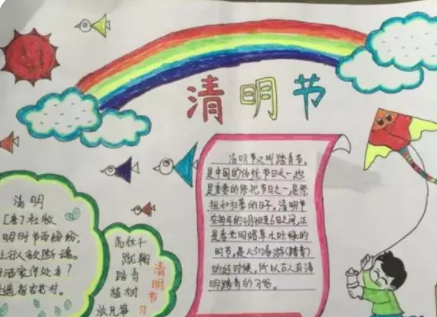 清明节
清明节又叫踏青节，
是中国的传统节日之一，也
是重要的祭祀节日之一，是祭
祖和扫墓的日子。清明节
在每年的4月4日至6日之间，正
是春光明媚草木吐绿的
时节，是人们春游(踏青)
的好时候，所以古人有清
明踏青的习俗。
清明
[唐]杜牧
明时节雨纷纷，
上行人欲断魂。
酒家何处
荡秋千
蹴鞠
踏青
植树
放风筝
清明节习